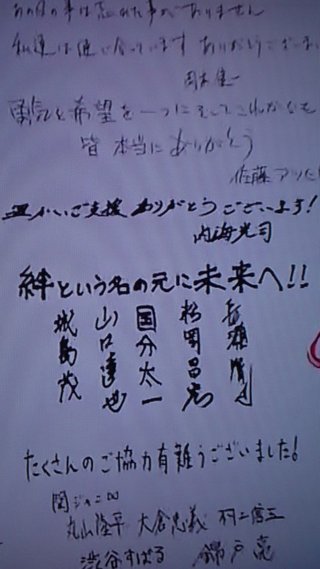 あの日の事は忘れた事がありません
私達は ありがとうございま
岡本健一
勇気と希望を一つにそしてこれからも
皆 本当にありがとう
佐藤アツヒ
温かいご支援 ありがとうございます!
内海光司
絆という名の元に未来へ!!
長瀬智也
松岡昌宏
国分太一
山口達也
城島茂
たくさんのご協力有難うございました!
関ジャニ∞
丸山隆平 大倉忠義 村上信五
渋谷すばる 錦戸亮